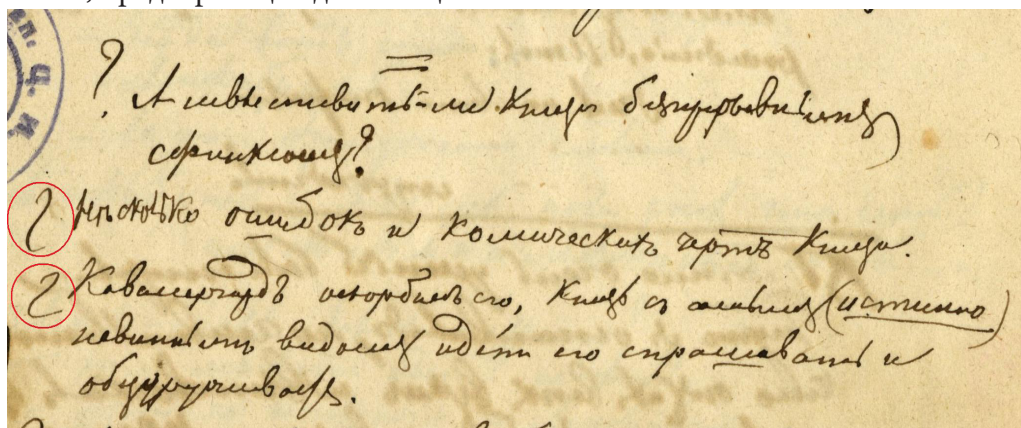 ?
А невыставить-ли Князя безпрерывнымъ
сфинксомъ?
Нѣсколько ошибокъ и комическихъ чертъ Князя.
Кавалергардъ оскорбилъ его, Князь съ самымъ (истинно)
невиннымъ видомъ идетъ его спрашивать и